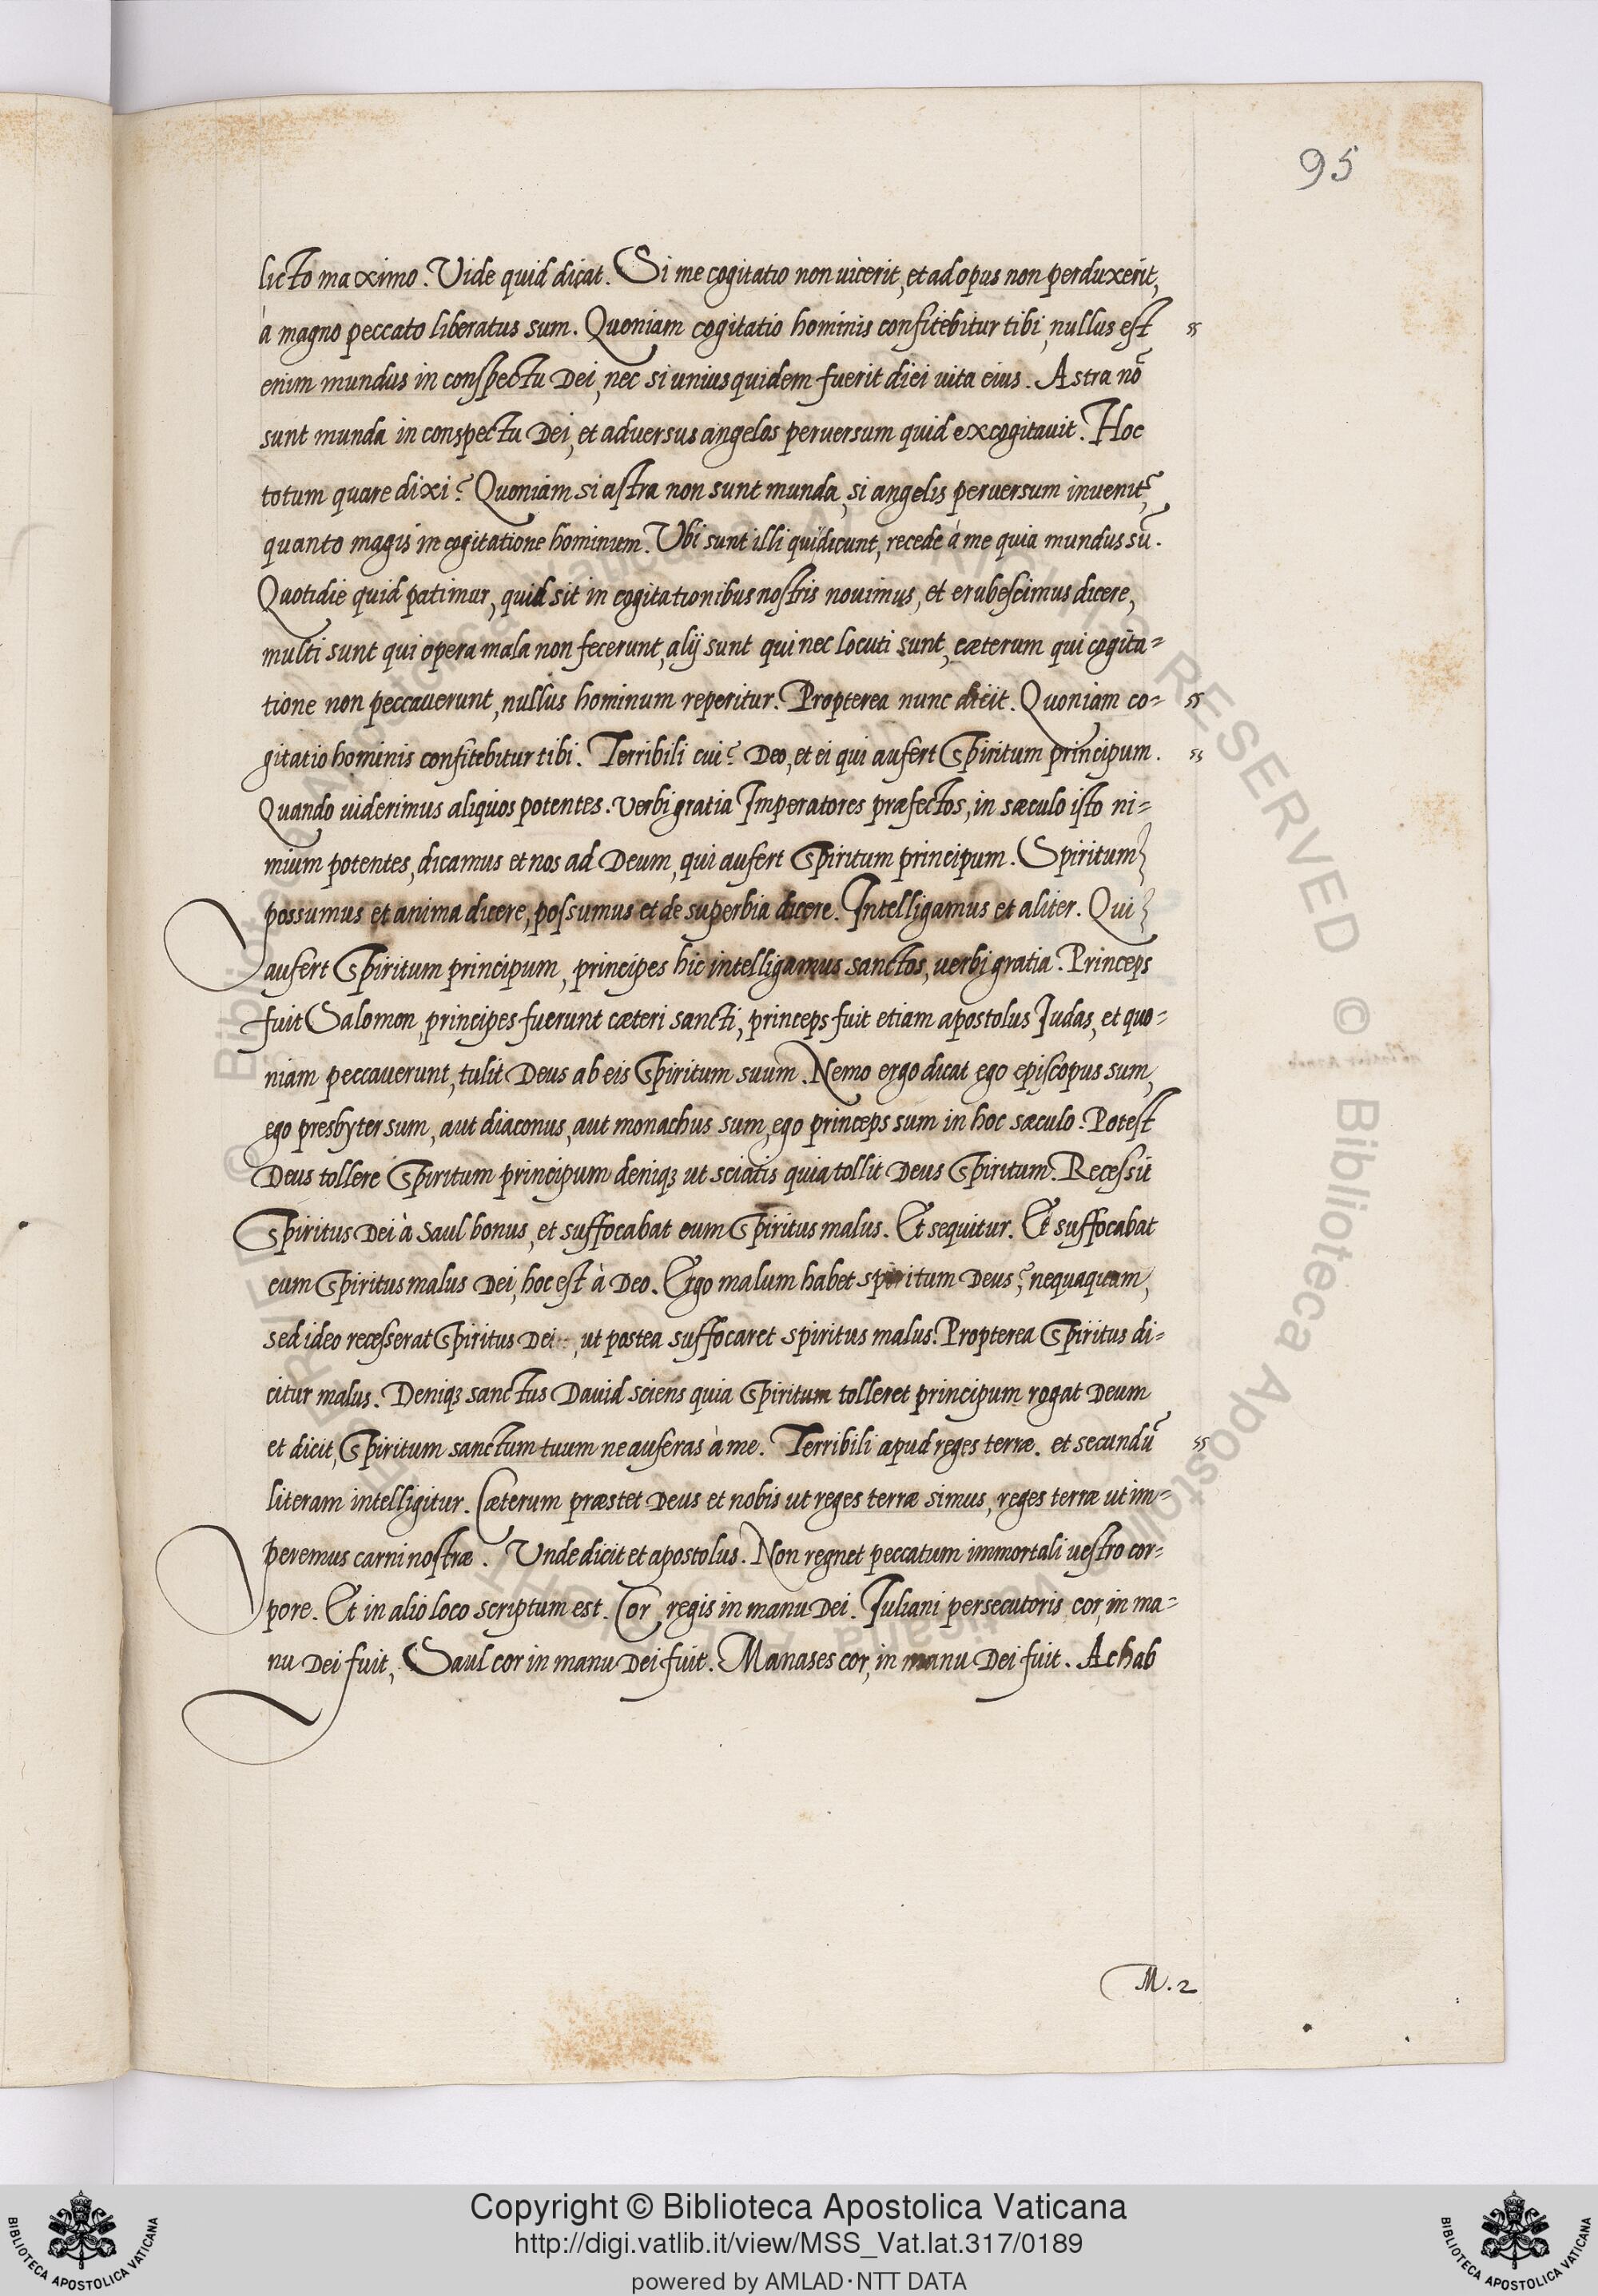 95
licto maximo. Vide quid dicat. Si me cogitatio non uicerit, et ad opus non perduxerit,
à magno peccato liberatus sum. Quoniam cogitatio hominis confitebitur tibi, nullus est
enim mundus in conspectu Dei, nec si unius quidem fuerit diei uita eius. Astra nō
sunt munda in conspectu Dei, et aduersus angelos peruersum quid excogitauit. Hoc
totum quare dixi? Quoniam si astra non sunt munda, si angelis peruersum inuenit,
quanto magis in cogitatione hominum. Vbi sunt illi qui dicunt, recede à me quia mundus sū.
Quotidie quid patimur, quid sit in cogitationibus nostris nouimus, et erubescimus dicere,
multi sunt qui opera mala non fecerunt, alij sunt qui nec locuti sunt, cæterum qui cogita=
tione non peccauerunt, nullus hominum reperitur. Propterea nunc dicit. Quoniam co=
gitatio hominis confitebitur tibi. Terribili cui? Deo, et ei qui aufert Spiritum principum.
Quando uiderimus aliquos potentes. uerbi gratia Imperatores præfectos, in sæculo isto ni=
mium potentes, dicamus et nos ad Deum, qui aufert Spiritum principum. Spiritum
possumus et anima dicere, possumus et de superbia dicere. Intelligamus et aliter. Qui
aufert Spiritum principum, principes hic intelligamus sanctos, uerbi gratia. Princeps
fuit Salomon, principes fuerunt cæteri sancti, princeps fuit etiam apostolus Judas, et quo=
niam peccauerunt, tulit Deus ab eis Spiritum suum. Nemo ergo dicat ego episcopus sum,
ego presbyter sum, aut diaconus, aut monachus sum, ego princeps sum in hoc sæculo. Potest
Deus tollere Spiritum principum deniqꝫ ut sciatis quia tollit Deus Spiritum. Recessit
Spiritus Dei à Saul bonus, et suffocabat eum Spiritus malus. Et sequitur. Et suffocabat
eum Spiritus malus Dei, hoc est à Deo. Ergo malum habet spiritum Deus? nequaquam,
sed ideo recesserat Spiritus Dei, ut postea suffocaret spiritus malus. Propterea Spiritus di=
citur malus. Deniqꝫ sanctus Dauid sciens quia Spiritum tolleret principum rogat Deum
et dicit, Spiritum sanctum tuum ne auferas à me. Terribili apud reges terræ. et secundū
literam intelligitur. Cæterum præstet Deus et nobis ut reges terræ simus, reges terræ ut im=
peremus carni nostræ. Unde dicit et apostolus. Non regnet peccatum immortali uestro cor=
pore. Et in alio loco scriptum est. Cor regis in manu Dei. Iuliani persecutoris cor, in ma=
nu Dei fuit, Saul cor in manu Dei fuit. Manases cor, in manu Dei fuit. Achab
M. 2
Copyright © Biblioteca Apostolica Vaticana
http://digi.vatlib.it/view/MSS_Vat.lat.317/0189
powered by AMLAD·NTT DATA
BIBLIOTECA APOSTOLICA VATICANA
BIBLIOTECA APOSTOLICA VATICANA